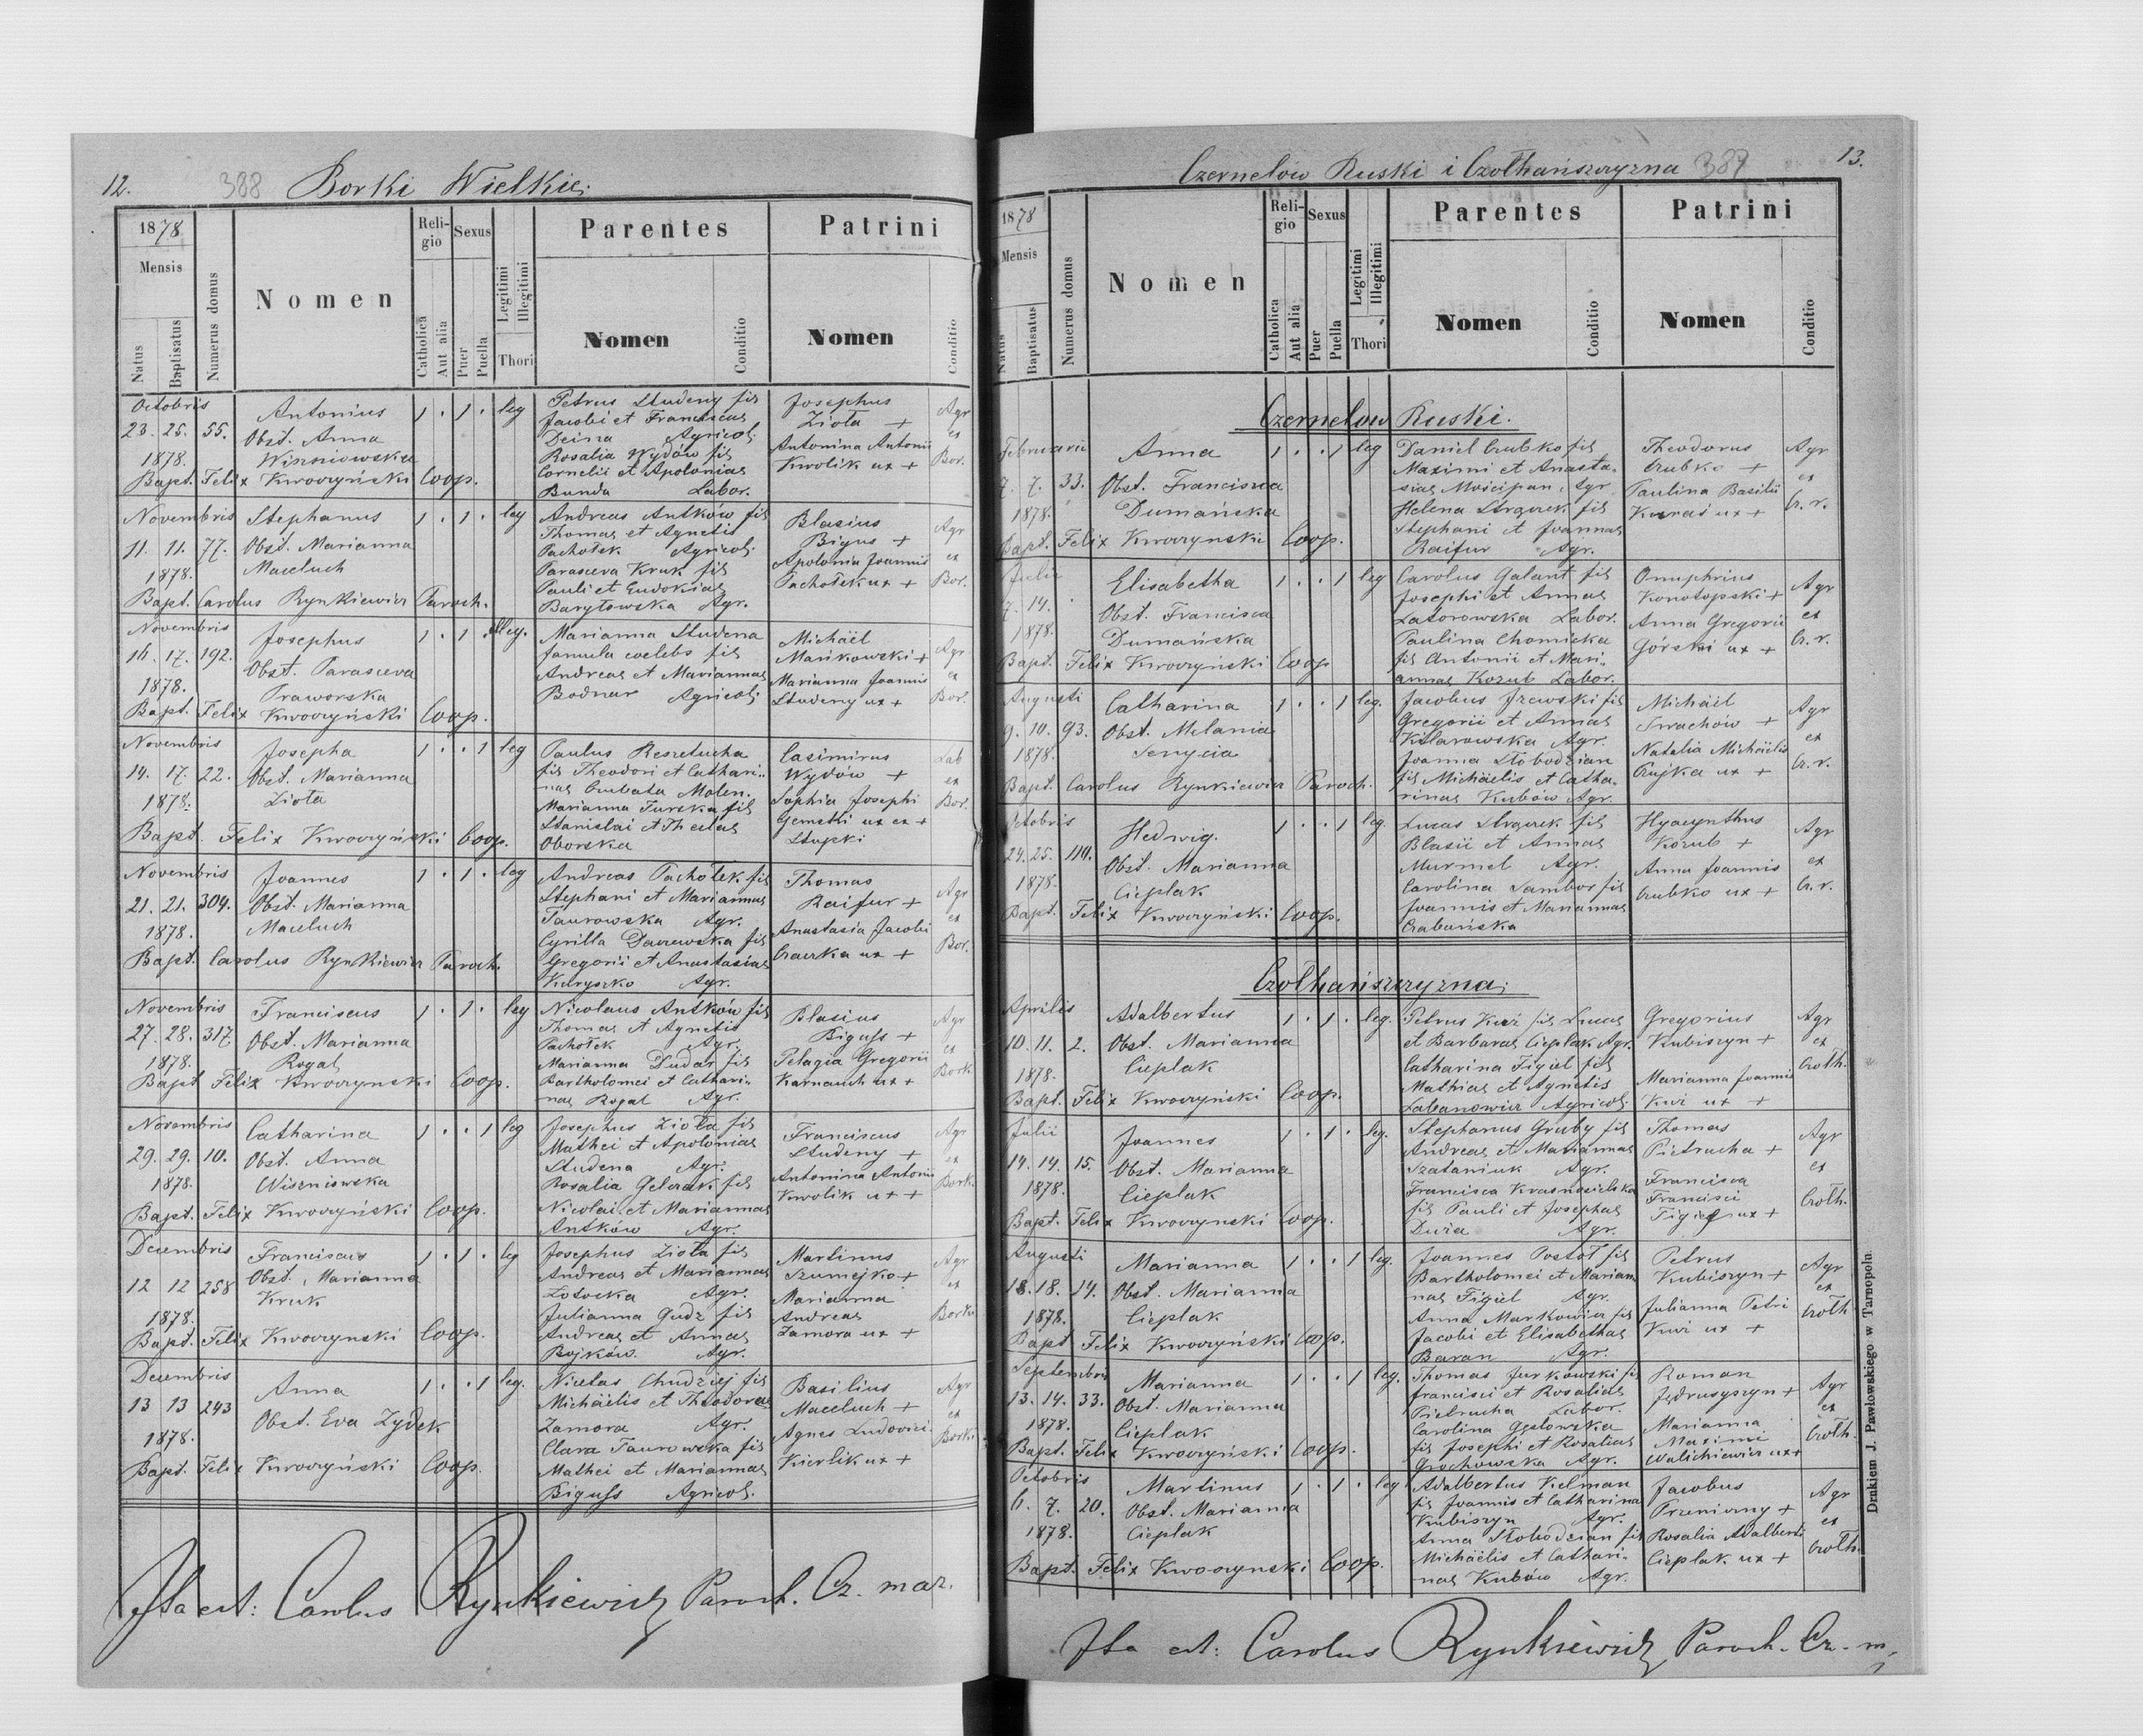 12. 388 Borki Wielkie.
1878
Mensis
Natus
Baptisatus
Numerus domus
Nomen
Religio
Catholica
Aut alia
Sexus
Puer
Puella
Legitimi
Illegitimi
Thori
Parentes
Nomen
Conditio
Patrini
Nomen
Conditio
Octobris
23. 25. 55.
1878.
Antonius
Obst. Anna
Wiszniowska
1 . 1 . leg
Petrus Studeny fil
Jacobi et Franciscae
Deina Agricol.
Rosalia Wydów fil
Cornelii et Apoloniae
Bunda Labor.
Josephus
Zioła +
Antonina Antonii
Kwolik ux +
Agr
ex
Bor.
Bapt. Felix Kwoczyński Coop.
Novembris
11. 11. 77.
1878.
Stephanus
Obst. Marianna
Maceluch
1 . 1 . leg
Andreas Antków fil
Thomae et Agnetis
Pachołek Agricol.
Parasceva Kruk fil
Pauli et Eudokiae
Baryłowska Agr.
Blasius
Bigus +
Apolonia Joannis
Pachołek ux +
Agr
ex
Bor.
Bapt. Carolus Rynkiewicz Paroch.
Novembris
16. 17. 192.
1878.
Josephus
Obst. Parasceva
Praworska
1 . 1 . illeg.
Marianna Studena
famula coelebs fil
Andreae et Mariannae
Bodnar Agricol.
Michaël
Mańkowski +
Marianna Joannis
Studeny ux +
Agr
ex
Bor.
Bapt. Felix Kwoczyński Coop.
Novembris
14. 17. 22.
1878.
Josepha
Obst. Marianna
Zioła
1 . . 1 leg
Paulus Reszetucha
fil Theodori et Cathari-
nae Cubata Molen.
Marianna Turska fil
Stanislai et Theclae
Oborska
Casimirus
Wydów +
Sophia Josephi
Gemethi ux ex +
Słupki
Lab
ex
Bor.
Bapt. Felix Kwoczyński Coop.
Novembris
21. 21. 304.
1878.
Joannes
Obst. Marianna
Maceluch
1 . 1 . leg
Andreas Pachołek fil
Stephani et Mariannae
Taurowska Agr.
Cyrilla Daczewska fil
Gregorii et Anastasiae
Kudryszko Agr.
Thomas
Raifur +
Anastasia Jacobi
Czaczka ux +
Agr
ex
Bor.
Bapt. Carolus Rynkiewicz Paroch.
Novembris
27. 28. 317.
1878.
Franciscus
Obst. Marianna
Rogal
1 . 1 . leg
Nicolaus Antków fil
Thomae et Agnetis
Pachołek Agr.
Marianna Dudar fil
Bartholomei et Cathari-
nae Rogal Agr.
Blasius
Biguss +
Pelagia Gregorii
Karnauch ux +
Agr
ex
Bork
Bapt. Felix Kwoczynski Coop.
Novembris
29. 29. 10.
1878.
Catharina
Obst. Anna
Wiszniowska
1 . . 1 leg
Josephus Zioła fil
Mathei et Apoloniae
Studena Agr.
Rosalia Gelerak fil
Nicolai et Mariannae
Antków Agr.
Franciscus
Studeny +
Antonina Antonii
Kwolik ux +
Agr
ex
Bork.
Bapt. Felix Kwoczyński Coop.
Decembris
12 12 258
1878.
Franciscus
Obst. Marianna
Kruk
1 . 1 . leg
Josephus Zioła fil
Andreae et Mariannae
Łotocka Agr.
Julianna Gudz fil
Andreae et Annae
Bojków. Agr.
Martinus
Szumejko +
Marianna
Andreae
Zamora ux +
Agr
ex
Borki
Bapt. Felix Kwoczynski Coop.
Decembris
13 13 243
1878.
Anna
Obst. Eva Zydek
1 . . 1 leg.
Nicetas Chudziej fil
Michaëlis et Theodorae
Zamora Agr.
Clara Taurowska fil
Mathei et Mariannae
Biguss Agricol.
Basilius
Maceluch +
Agnes Ludovici
Kierlik ux +
Agr
ex
Borki
Bapt. Felix Kwoczyński Coop.
Ita est: Carolus Rynkiewicz Paroch. Cz. maz.
Czernelów Ruski i Czołhańszczyzna 389 13.
1878
Mensis
Natus
Baptisatus
Numerus domus
Nomen
Religio
Catholica
Aut alia
Sexus
Puer
Puella
Legitimi
Illegitimi
Thori
Parentes
Nomen
Conditio
Patrini
Nomen
Conditio
Czernelow Ruski.
Februarii
7. 7. 33.
1878.
Anna
Obst. Francisca
Dumańska
1 . . 1 leg
Daniel Czubko fil
Maximi et Anasta-
siae Mościpan, Agr
Helena Strgzek fil
Stephani et Joannae
Raifur Agr.
Theodorus
Czubko +
Paulina Basilii
Kunaś ux +
Agr
ex
Cz. r.
Bapt. Felix Kwoczynski Coop.
Julii
7. 14.
1878.
Elisabetha
Obst. Francisca
Dumańska
1 . . 1 leg
Carolus Galant fil
Josephi et Annae
Zatorowska Labor.
Paulina Chomicka
fil Antonii et Mari-
annae Kozub Labor.
Onuphrius
Konotopski +
Anna Gregorii
Górski ux +
Agr
ex
Cz. r.
Bapt. Felix Kwoczyński Coop
Augusti
9. 10. 93.
1878.
Catharina
Obst. Melania
Senycia
1 . . 1 leg.
Jacobus Jzewski fil
Gregorii et Annae
Kitlarowska Agr.
Joanna Słobodzian
fil Michaëlis et Catha-
rinae Kubów Agr.
Michaël
Swachów +
Natalia Michaëlis
Czujka ux +
Agr
ex
Cz. r.
Bapt. Carolus Rynkiewicz Paroch.
Octobris
24. 25. 110.
1878.
Hedwig.
Obst. Marianna
Cieplak
1 . . 1 leg.
Lucas Strgzek fil
Blasii et Annae
Murmel Agr.
Carolina Sambor fil
Joannis et Mariannae
Czabańska
Hyacynthus
Kozub +
Anna Joannis
Czubko ux +
Agr
ex
Cz. r.
Bapt. Felix Kwoczyński Coop.
Czołhańszczyzna.
Aprilis
10. 11. 2.
1878.
Adalbertus
Obst. Marianna
Cieplak
1 . 1 . leg.
Petrus Kuź fil Lucae
et Barbarae Cieplak Agr.
Catharina Figiel fil
Mathiae et Agnetis
Labanowicz Agricol.
Gregorius
Kubiszyn +
Marianna Joannis
Kuzi ux +
Agr
ex
Czołh.
Bapt. Felix Kwoczyński Coop.
Julii
14. 14. 15.
1878.
Joannes
Obst. Marianna
Cieplak
1 . 1 . leg.
Stephanus Gruby fil
Andreae et Mariannae
Szataniuk Agr.
Francisca Krasnosielska
fil Pauli et Josephae
Duzia Agr.
Thomas
Pietrucha +
Francisca
Francisci
Figiel ux +
Agr
ex
Czołh.
Bapt. Felix Kwoczynski Coop.
Augusti
18. 18. 14.
1878.
Marianna
Obst. Marianna
Cieplak
1 . . 1 leg.
Joannes Postoł fil
Bartholomei et Marian-
nae Figiel Agr.
Anna Markowicz fil
Jacobi et Elisabethae
Baran Agr.
Petrus
Kubiszyn +
Julianna Petri
Kuzi ux +
Agr
ex
Czołh
Bapt Felix Kwoczyński Coop.
Septembris
13. 14. 33.
1878.
Marianna
Obst. Marianna
Cieplak
1 . . 1 leg.
Thomas Jurkowski fil
Francisci et Rosalidis
Pietrucha Labor.
Carolina Gęsłowska
fil Josephi et Rosaliae
Grochowska Agr.
Roman
Jędrusyszyn +
Marianna
Maximi
Walichiewicz ux +
Agr
ex
Czołh.
Bapt. Felix Kwoczyński Coop.
Octobris
6. 7. 20.
1878.
Martinus
Obst. Marianna
Cieplak
1 . 1 . leg
Adalbertus Kelman
fil Joannis et Catharina
Kubiszyn Agr.
Anna Słobodzian fil
Michaëlis et Cathari-
nae Kubów Agr.
Jacobus
Przeniczny +
Rosalia Adalberti
Cieplak ux +
Agr
ex
Czołh.
Bapt. Felix Kwoczynski Coop.
Ita est: Carolus Rynkiewicz Paroch. Cz. m.
Drukiem J. Pawłowskiego w Tarnopolu.